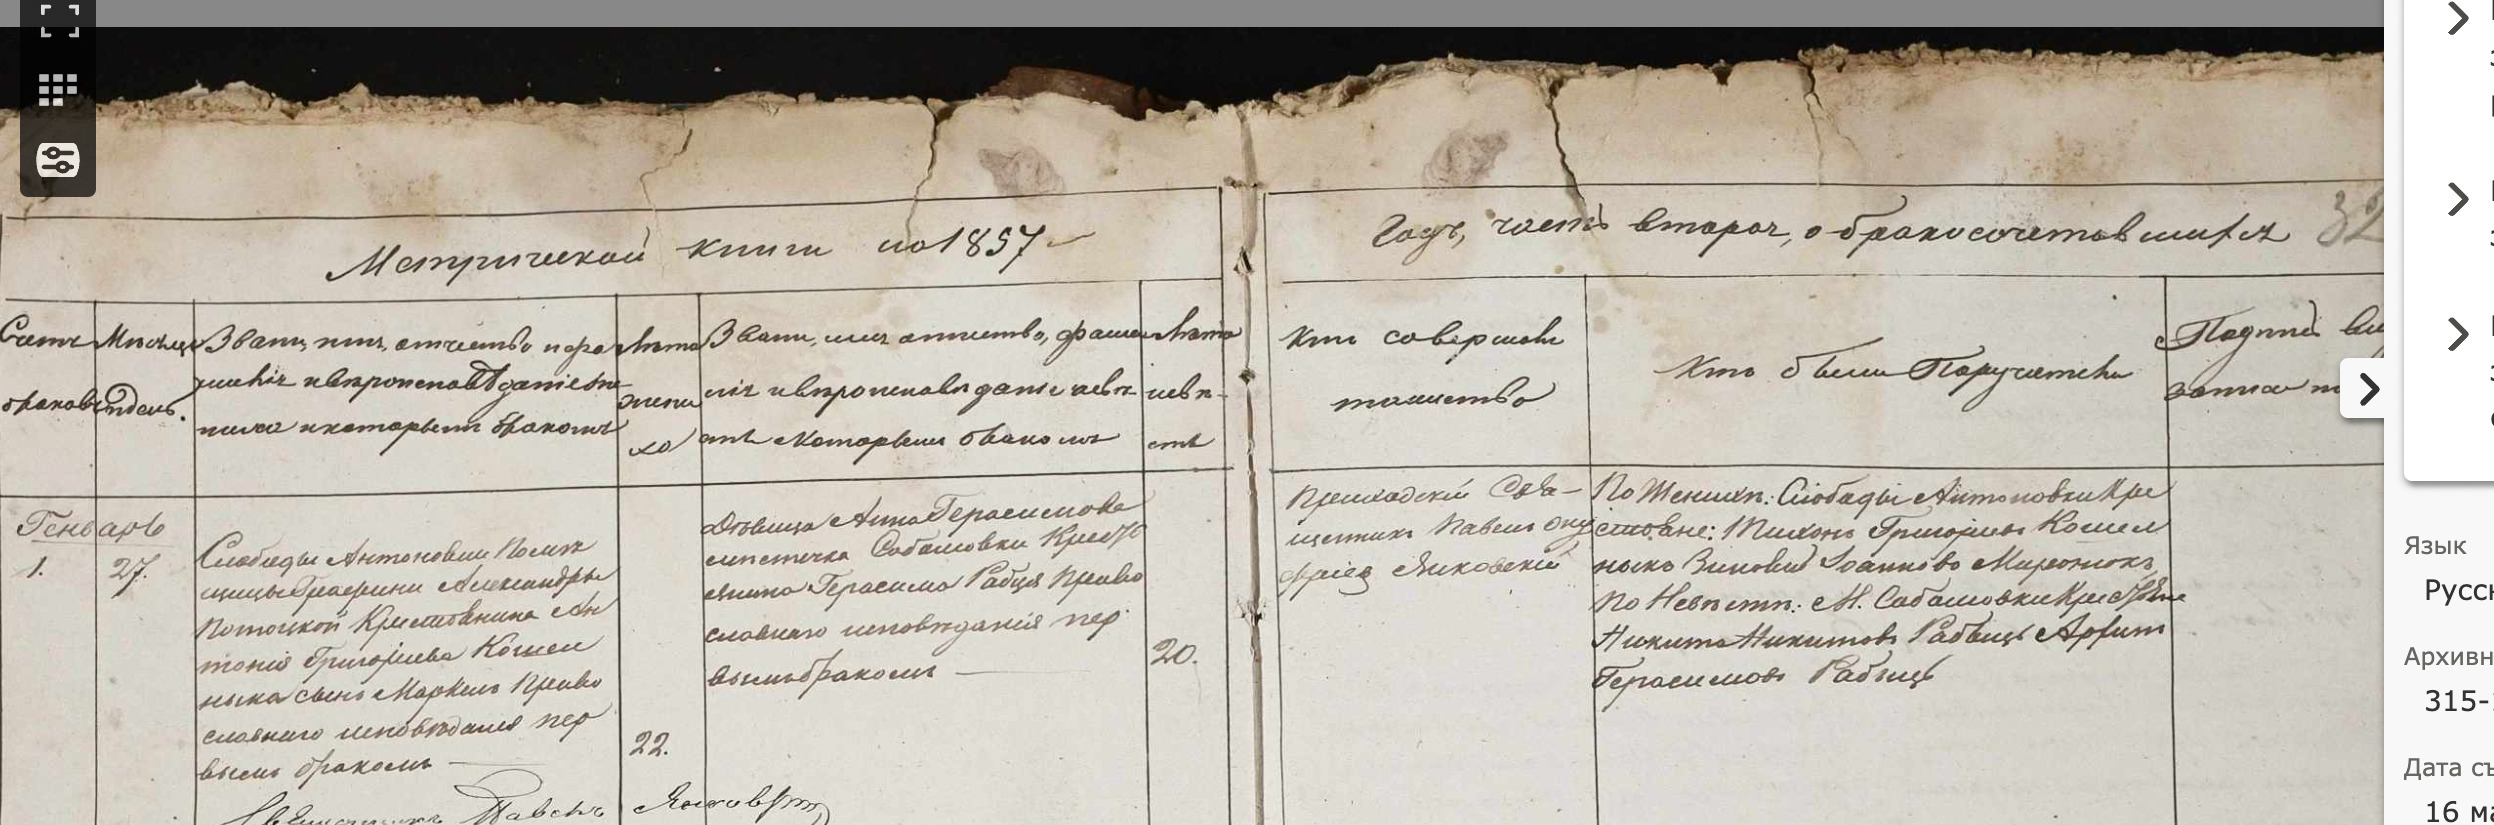 Метрической книги на 1857
Годъ, часть вторая, о бракосочетавшихся
32
Счетъ
браковъ
Мѣсяцъ
и день.
Званіе, имя, отчество и фа
милія и вѣроисповѣданіе же
ниха и которымъ бракомъ
Лѣта
жени
ха
Званіе, имя отчество, фами
лія и вѣроисповѣданіе невѣ-
сты и которымъ бракомъ
Лѣта
невѣ-
сты
Кто совершалъ
таинство
Кто были Поручители
Подпись
записи
Генварь
1.
27.
Слободы Антоновки Помѣ
щицы Графини Александры
Потоцкой Крестьянина Ан
тонія Григорьева Кошел
ныка сынъ Маркелъ Право
славнаго исповѣданія пер
вымъ бракомъ
22.
Дѣвица Анна Герасимова
мѣстечка Соболовки Кресть
янина Герасима Рабця Право
славнаго исповѣданія пер
вымъ бракомъ
20.
Приходскій Свя-
щенникъ Павелъ Ону
фріевъ Яковскій
По Женихѣ: Слободы Антоновки Кре
стьяне: Тихонъ Григорьевъ Кошел
ныкъ Зиновій Іоанновъ
По Невѣстѣ: М. Соболовки Крестьяне
Никита Никитовъ Рабець
Герасимовъ Рабець
Священникъ Павелъ
Язык
Русск
Архивн
315-
Дата съ
16 ма